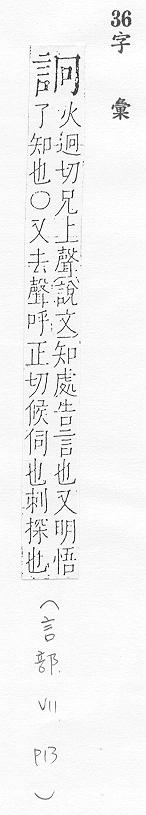 36字彙
詗火迥切兄上聲說文知處告言也又明悟
了知也○又去聲呼正切候伺也刺探也
(言部 VII P13)